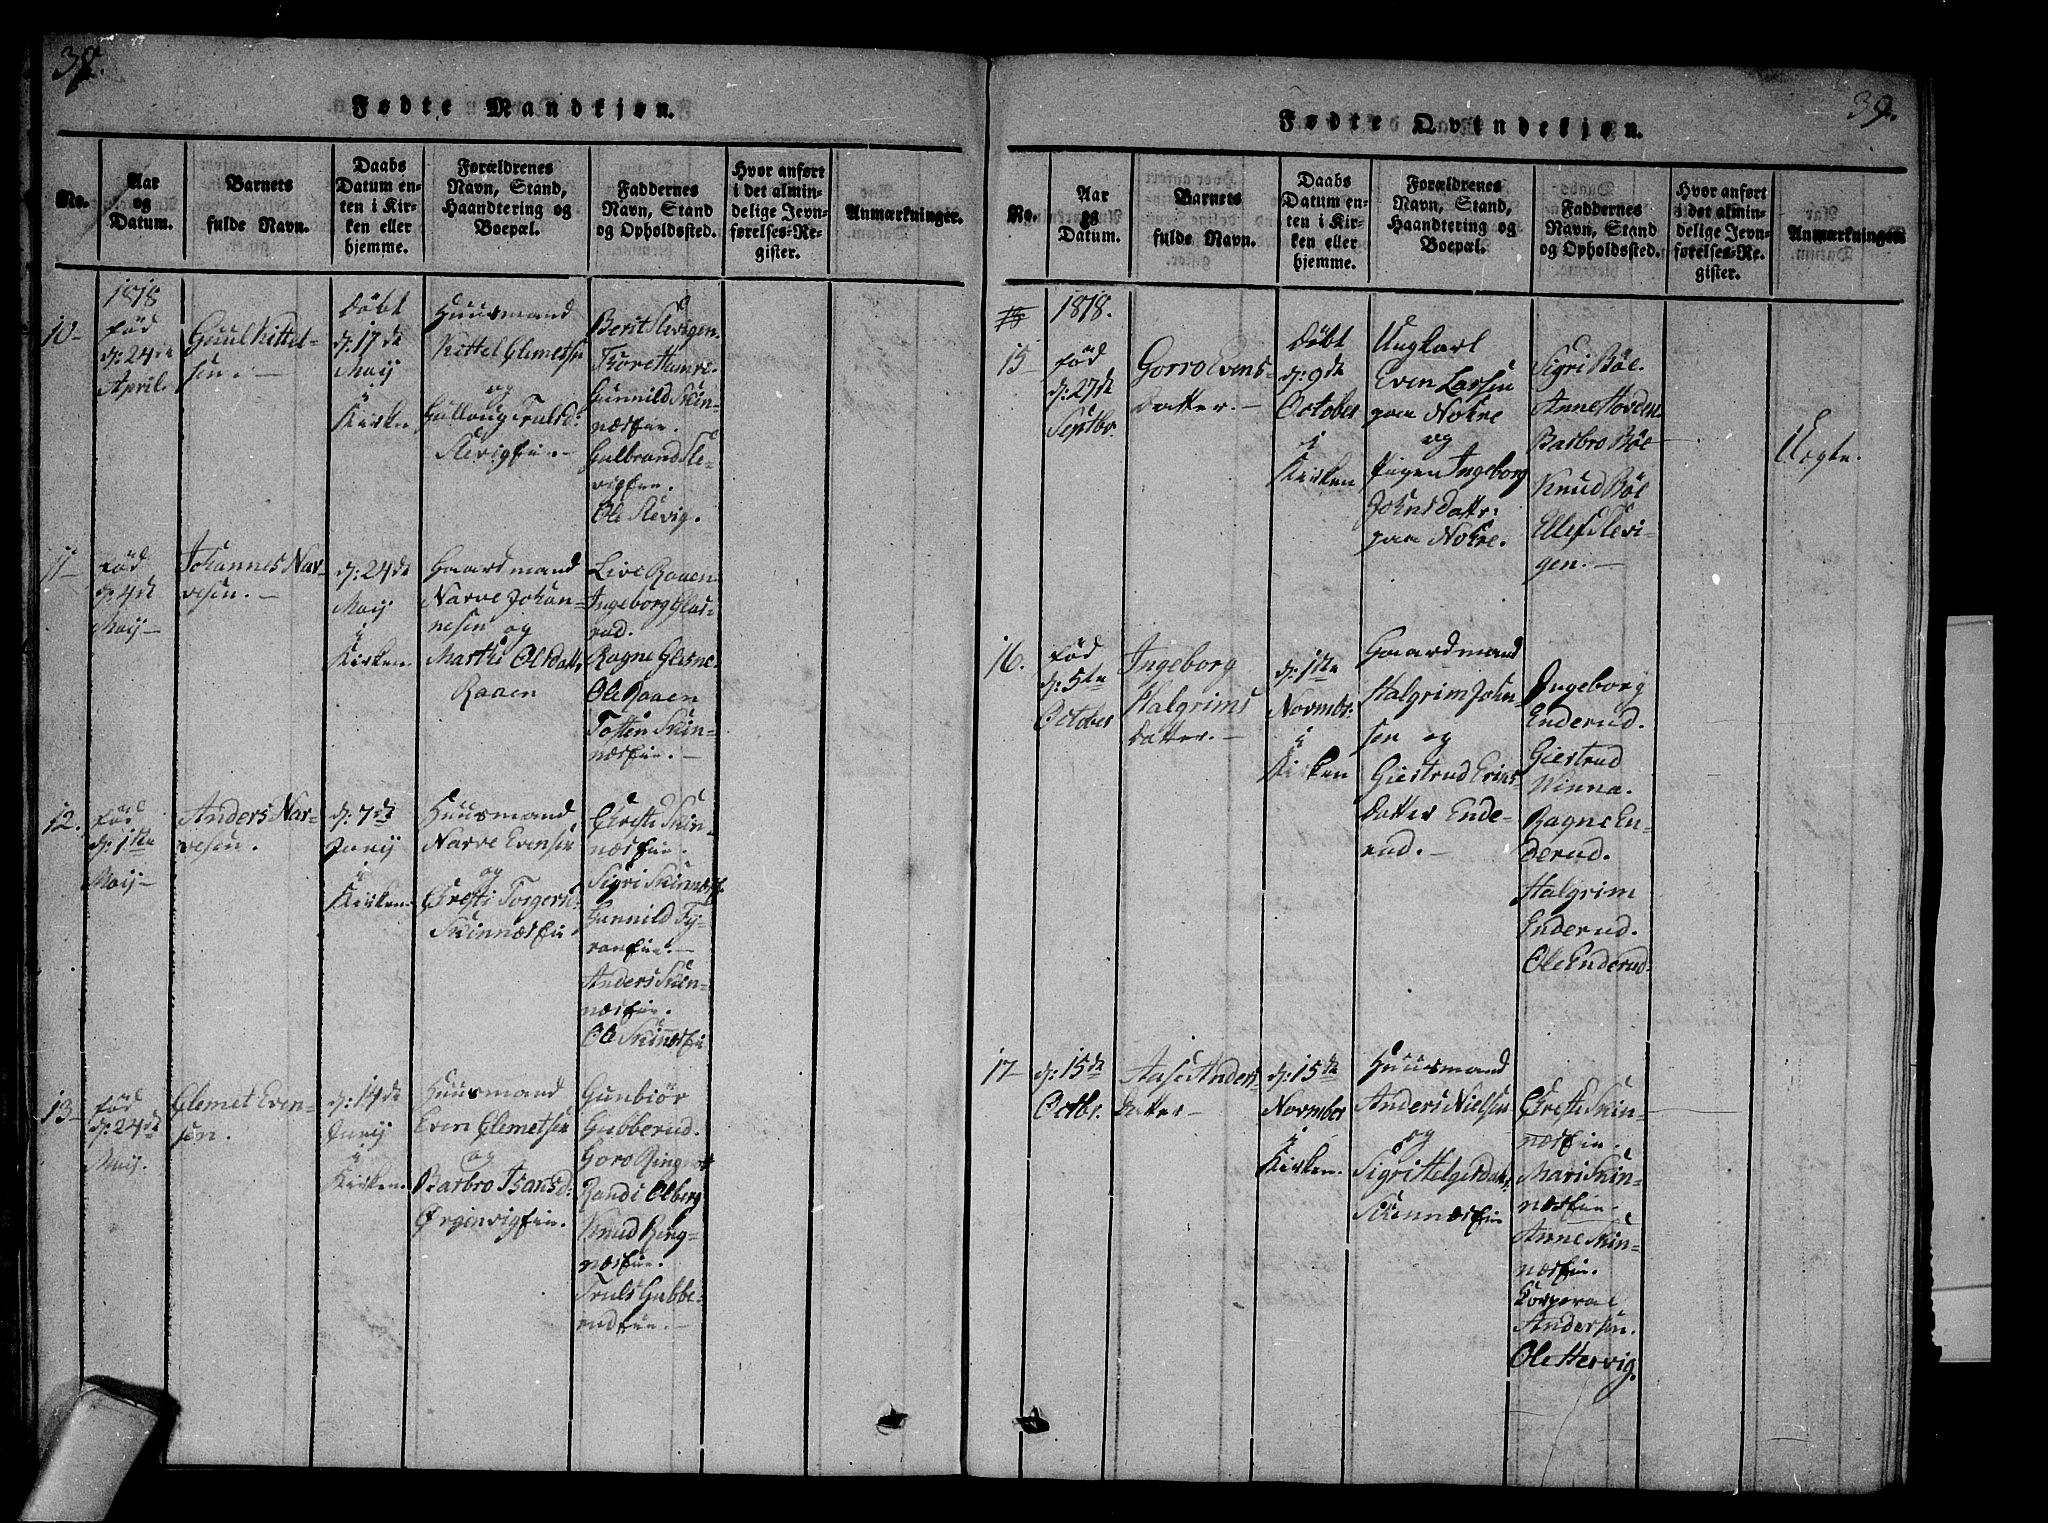 38.
Fødte Mandkjøn.
No.
Aar
og
Datum.
Barnets
fulde Navn.
Daabs
Datum en-
ten i Kir-
ken eller
hjemme.
Forældrenes
Navn, Stand,
Haandtering og
Boepæl.
Faddernes
Navn, Stand
og Opholdssted.
Hvor anført
i det almin-
delige Jevn-
førelses-Re-
gister.
Anmærkninger.
10-
1818
fød
d: 24de
April.
Guul Kittel-
sen. -
Døbt
d: 17de
Maij
i
Kirken
Huusmand
Kittel Clemetsen
og
Gulloug Trulsd:
Slevigfin. -
Berit Slevigen.
Thore Hamre.
Gunnild Skin-
næsfin.
Gulbrand Sle-
vigfin.
Ole Slevig.
11-
fød
d: 4de
Maij -
Johannes Nar-
vesen. -
d: 24de
Maij
i
Kirken
Gaardmand
Narve Johan-
nesen og
Marthe Olsdatt:
Raaen
Live Raaen
Ingeborg Glas-
rud.
Ragne Glesne
Ole Raaen
Tosten Skin-
næsfin. -
12.
fød
d: 1ste
Maij -
Anders Nar-
vesen.
d: 7de
Junij
i
Kirken.
Huusmand
Narve Evensen
og
Christi Torgersd:
Skinnæsfin
Christi Skin-
næsfin.
Sigri Skinnæsf.
Gunnild Fy-
ranfin. -
Anders Skin-
næsfin.
Ole Skinnæsfin
13-
fød
d: 24de
Maij.
Clemet Even-
sen.
d: 14de
Junij
i
Kirken.
Huusmand
Even Clemetsen
og
Barbro Ivarsd:
Ørgenvigfin.
Gunbiør
Gubberud.
Goro Ringnæs
Randi Olberg
Knud Ring-
næsfin.
Truls Gubbe-
rudfin. -
39.
Fødte Qvindekjøn.
No.
Aar
og
Datum.
Barnets
fulde Navn.
Daabs
Datum en-
ten i Kir-
ken eller
hjemme.
Forældrenes
Navn, Stand,
Haandtering og
Boepæl.
Faddernes
Navn, Stand
og Opholdssted.
Hvor anført
i det almin-
delige Jevn-
førelses-Re-
gister.
Anmærkninger
15
1818.
fød
d: 27de
Septbr.
Gorro Evens-
datter. -
Døbt
d: 9de
October
i
Kirken
Ungkarl
Even Larsen
paa Nokre
og
Pigen Ingeborg
Johnsdattr:
paa Nokre.
Sigri Bøe.
Anne Horden
Barbro Bøe
Knud Bøe
Ellef Slevi-
gen. -
Uægte.
16.
fød
d: 5te
October
Ingeborg
Halgrims
datter. -
d: 1ste
Novmbr.
i
Kirken
Gaardmand
Halgrim John-
sen og
Giertrud Erics-
datter Ende-
rud. -
Ingeborg
Enderud.
Giertrud
Winna.
Ragne En-
derud.
Halgrim
Enderud.
Ole Enderud.
17-
d: 15de
Octbr.
Aase Anders-
datter -
d: 15de
Novmber
i
Kirken.
Huusmand
Anders Nielsen
og
Sigri Helgesdattr.
Skinnæsfin
Christi Skin-
næsfin.
Mari Skin-
næsfin.
Anne Skin-
næsfin.
Corporal
Andersen.
Ole Hervig.